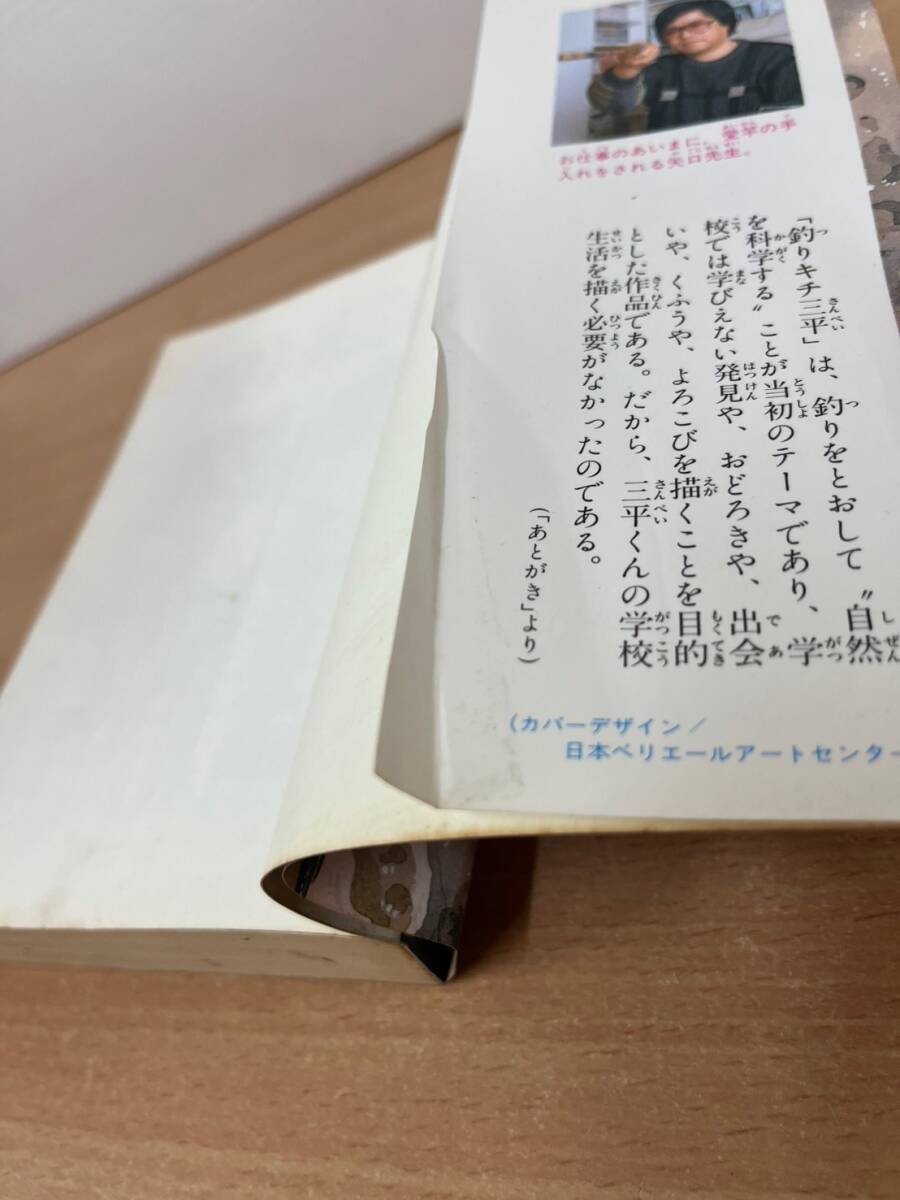 お仕事のあいまに、愛竿の手
入れをされる矢口先生。
「釣りキチ三平」は、釣りをとおして〝自然
を科学する〟ことが当初のテーマであり、学
校では学びえない発見や、おどろきや、出会
いや、くふうや、よろこびを描くことを目的
とした作品である。だから、三平くんの学校
生活を描く必要がなかったのである。
(「あとがき」より)
(カバーデザイン/
日本ベリエールアートセンター